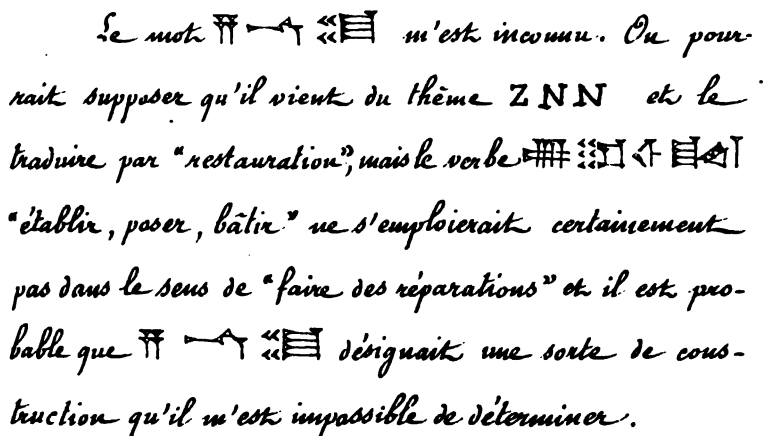 Le mot m'est inconnu. On pour-
rait supposer qu'il vient du thème ZNN et le
traduire par "restauration", mais le verbe
"établir, poser, bâtir" ne s'emploierait certainement
pas dans le sens de "faire des réparations" et il est pro-
bable que désignait une sorte de cons-
truction qu'il m'est impossible de déterminer.